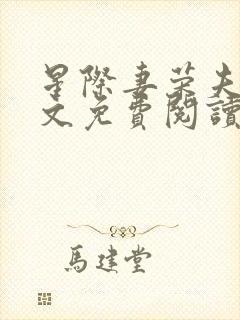 星際妻榮夫
文免費閱讀
馬建堂